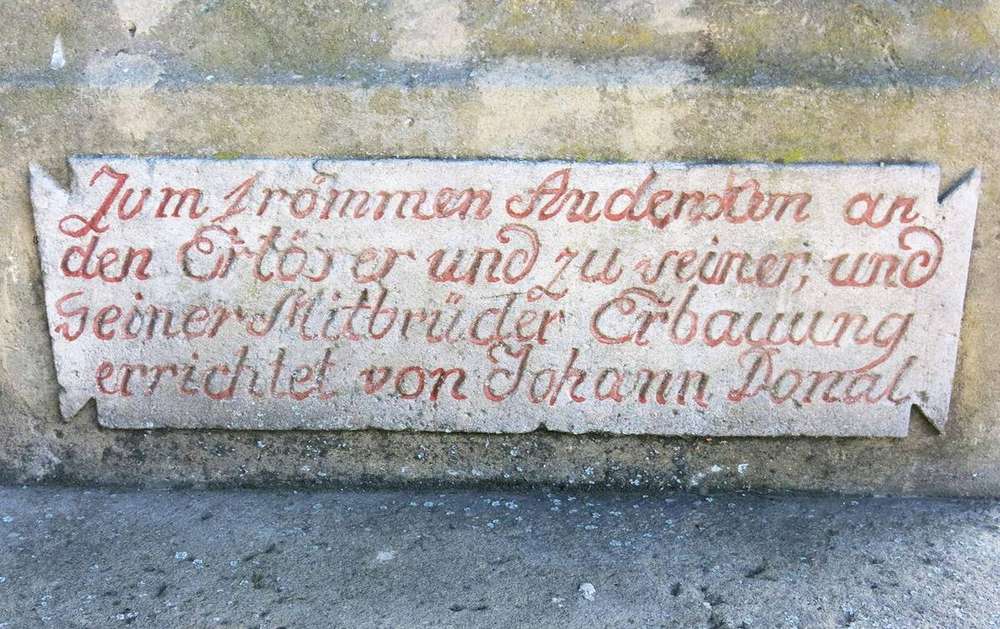 Zum frömmen Andenken an
den Ertöser und zu seiner, und
Seiner Mitbrüder Erbauung
errichtet von Johann Donal